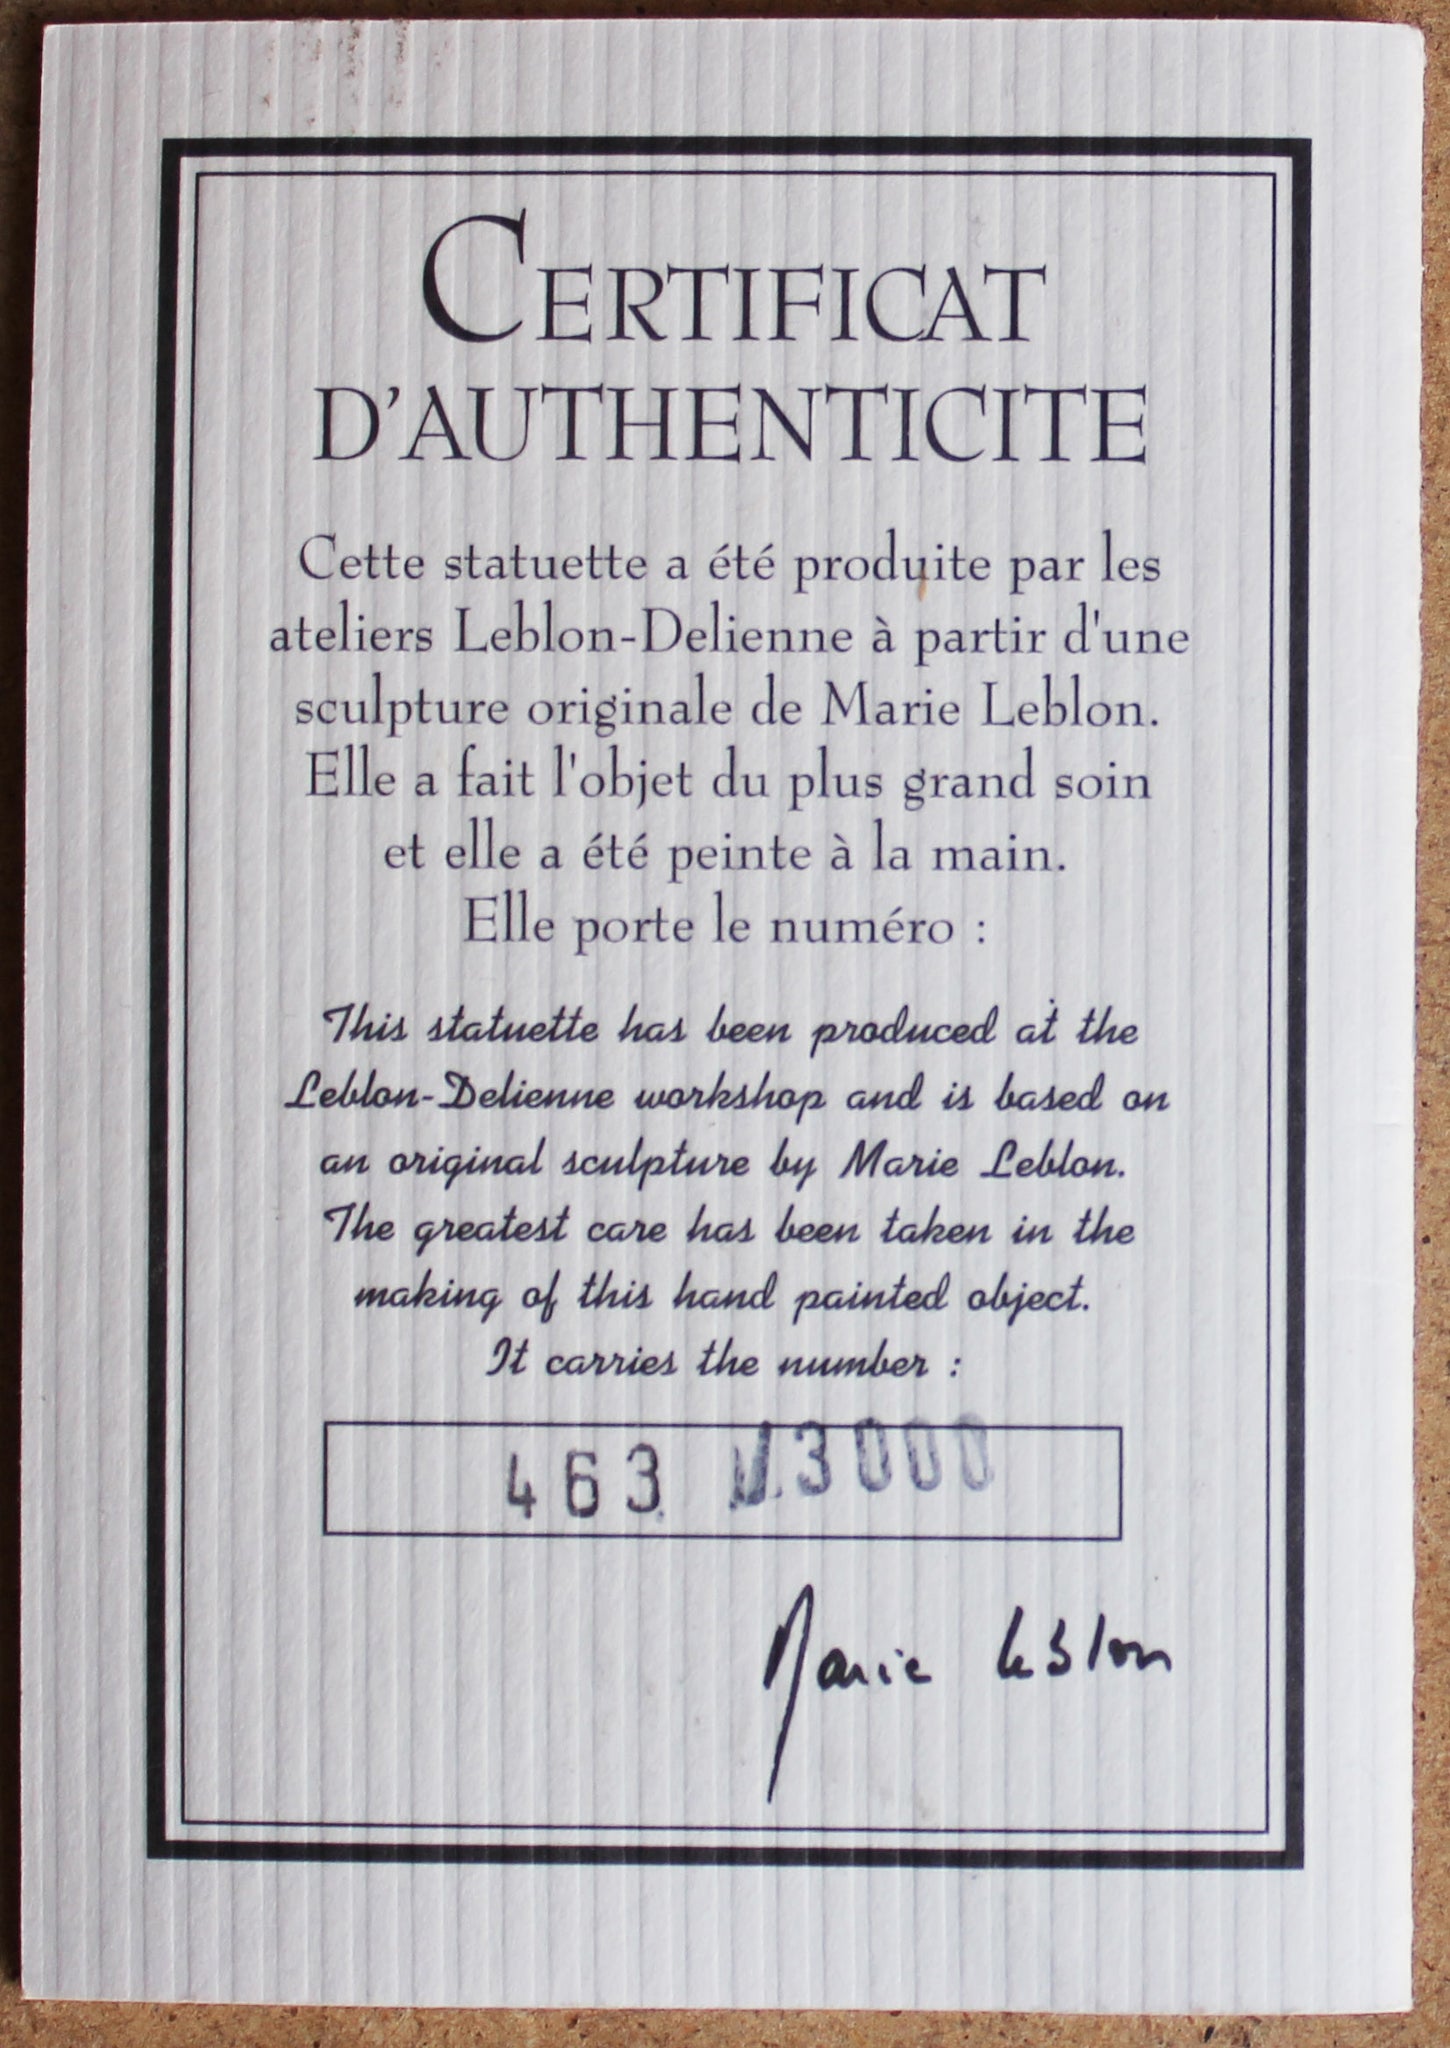 CERTIFICAT
D'AUTHENTICITE
Cette statuette a été produite par les
ateliers Leblon-Delienne à partir d'une
sculpture originale de Marie Leblon.
Elle a fait l'objet du plus grand soin
et elle a été peinte à la main.
Elle porte le numéro :
This statuette has been produced at the
Leblon-Delienne workshop and is based on
an original sculpture by Marie Leblon.
The greatest care has been taken in the
making of this hand painted object.
It carries the number :
463 3000
Marie Leblon